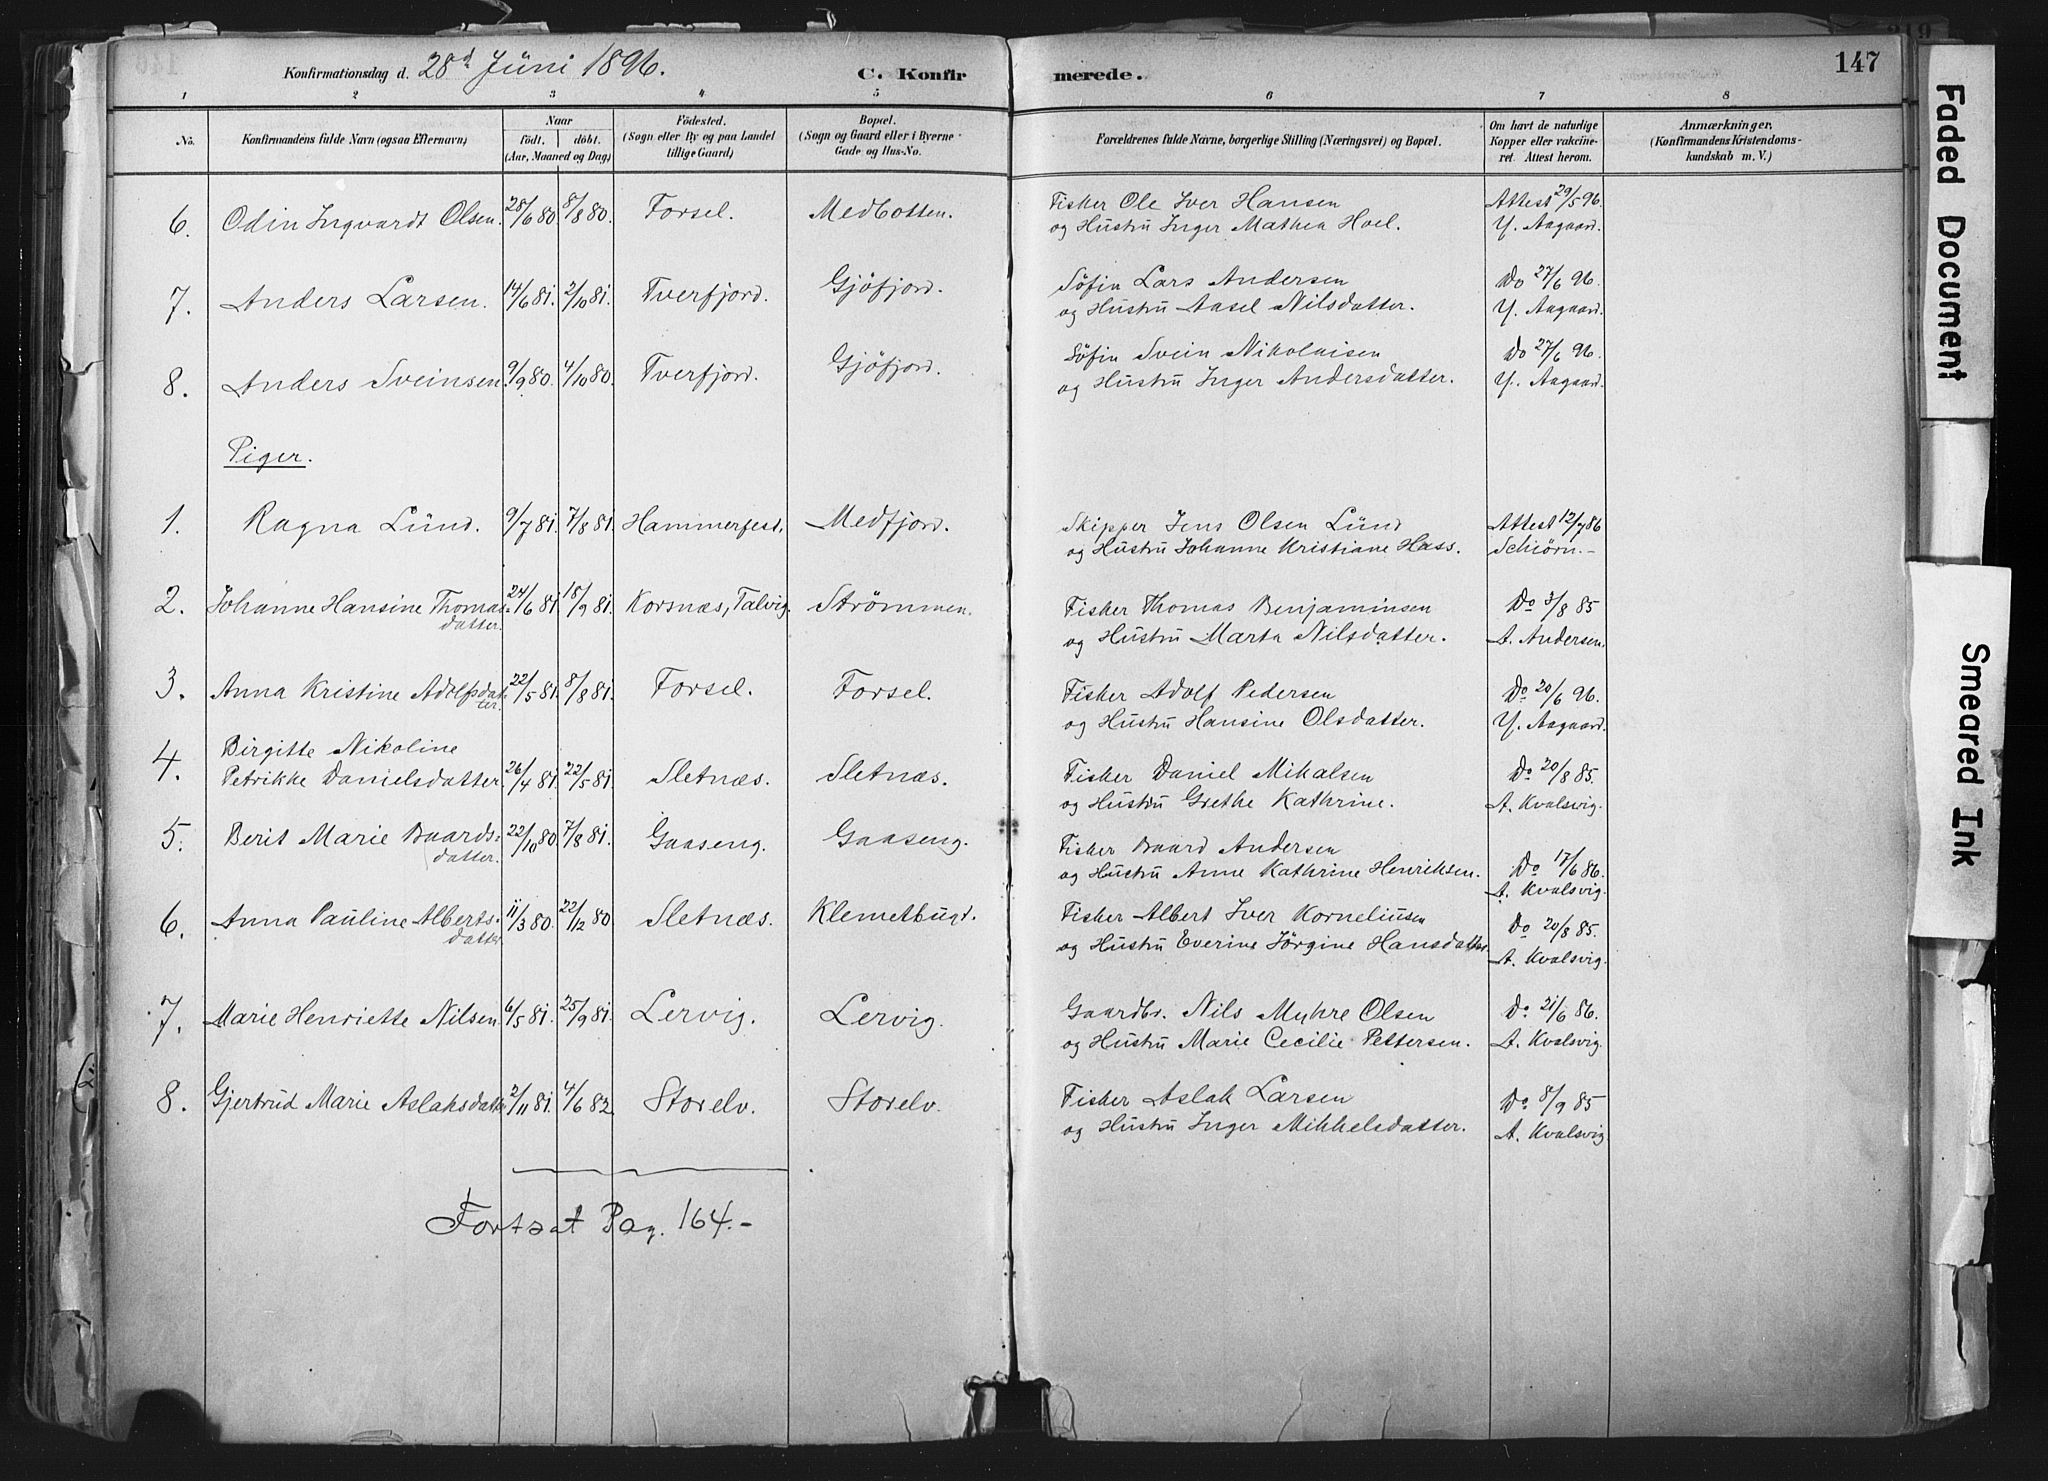 Konfirmationsdag d. 28d Jüni 1896.
C. Konfirmerede.
147
1 2 3 4 5 6 7 8
No.
Konfirmandens fulde Navn (ogsaa Efternavn)
Naar
født. døbt.
(Aar, Maaned og Dag)
Födested.
(Sogn eller By og paa Landet
tillige Gaard)
Bopæl.
(Sogn og Gaard eller i Byerne
Gade og Hus-No.
Forældrenes fulde Navne, borgerlige Stilling (Næringsvei) og Bopæl.
Om havt de naturlige
Kopper eller vakcine-
ret Attest herom.
Anmærkninger.
(Konfirmandens Kristendoms-
kundskab m. V.)
6. Odin Ingvardt Olsen. 28/6 80. 8/8 80. Forsøl. Medbotten. Fisker Ole Iver Hansen Attest 29/5 96.
og Hustrü Inger Mathea Hoel. Y. Aagaard.
7. Anders Larsen. 14/6 81. 2/10 81. Tverfjord. Gjöfjord. Söfin Lars Andersen Do 27/6 96.
og Hustrü Aasel Nilsdatter. Y. Aagaard.
8. Anders Sveinsen. 9/9 80. 4/10 80. Tverfjord. Gjöfjord. Söfin Svein Nikolaisen Do 27/6 96.
og Hustrü Inger Andersdatter. Y. Aagaard.
Piger.
1. Ragna Lünd. 9/7 81. 7/8 81. Hammerfest. Medfjord. Skipper Jens Olsen Lünd Attest 12/7 86
og Hustrü Johanne Kristiane Hass. Schiörn.-
2. Johanne Hansine Thomas- 24/6 81. 18/9 81. Korsnæs, Talvig. Strömmen. Fisker Thomas Benjaminsen Do 3/8 85
datter. og Hustrü Marta Nilsdatter. A. Andersen.
3. Anna Kristine Adolfsdat- 22/5 81. 8/8 81. Forsøl. Forsøl. Fisker Adolf Pedersen Do 20/6 96.
ter. og Hustrü Hansine Olsdatter. Y. Aagaard.
4. Birgitte Nikoline
Petrikke Danielsdatter. 26/4 81. 22/5 81. Sletnæs. Sletnæs. Fisker Daniel Mikalsen Do 20/8 85.
og Hustrü Grethe Kathrine. A. Kvalsvig.
5. Berit Marie Baards- 22/10 80. 7/8 81. Gaaseng. Gaaseng. Fisker Baard Andersen
datter. og Hustrü Anne Kathrine Henriksen. Do 17/6 86.
A. Kvalsvig.
6. Anna Pauline Alberts- 11/3 80. 22/12 80 Sletnæs. Klemetbugt. Fisker Albert Iver Korneliüsen Do 20/8 85.
datter. og Hustrü Everine Jörgine Hansdatter. A. Kvalsvig.
7. Marie Henriette Nilsen 6/5 81. 25/9 81. Lervig. Lervig. Gaardbr. Nils Myhre Olsen Do 21/6 86.
og Hustrü Marie Cecilie Pettersen. A. Kvalsvig.
8. Gjertrüd Marie Aslaksdatter 2/11 81. 4/6 82. Storelv. Storelv. Fisker Aslak Larsen Do 8/9 85
og Hustrü Inger Mikkelsdatter. A. Kvalsvig.
Fortsat Pag. 164.-
Faded Document
Smeared Ink